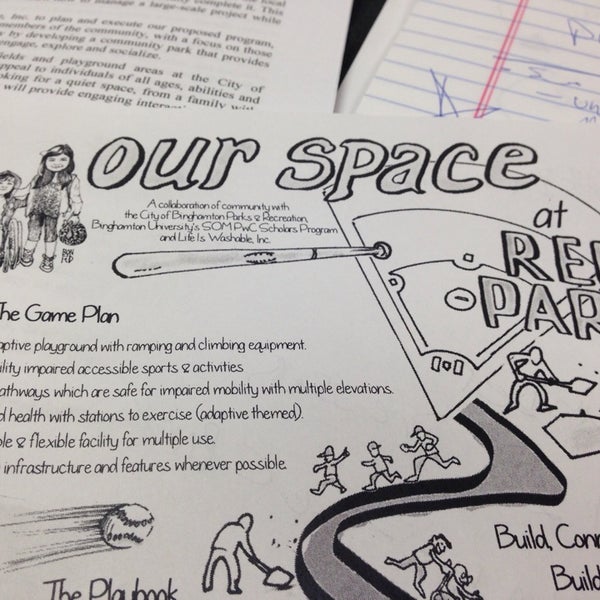 Inc. to plan and execute our proposed program,
members of the community, with a focus on those
by developing a community park that provides
engage, explore and socialize.
fields and playground areas at the City of
appeal to individuals of all ages, abilities and
looking for a quiet space, from a family with
will provide engaging
our space
A collaboration of community with
the City of Binghamton Parks & Recreation,
Binghamton University's SOM PwC Scholars Program
and Life Is Washable, Inc.
at
RE
PAR
The Game Plan
aptive playground with ramping and climbing equipment.
ility impaired accessible sports & activities
athways which are safe for impaired mobility with multiple elevations.
d health with stations to exercise (adaptive themed).
ble & flexible facility for multiple use.
infrastructure and features whenever possible.
Build, Conn
Build
The Playbook